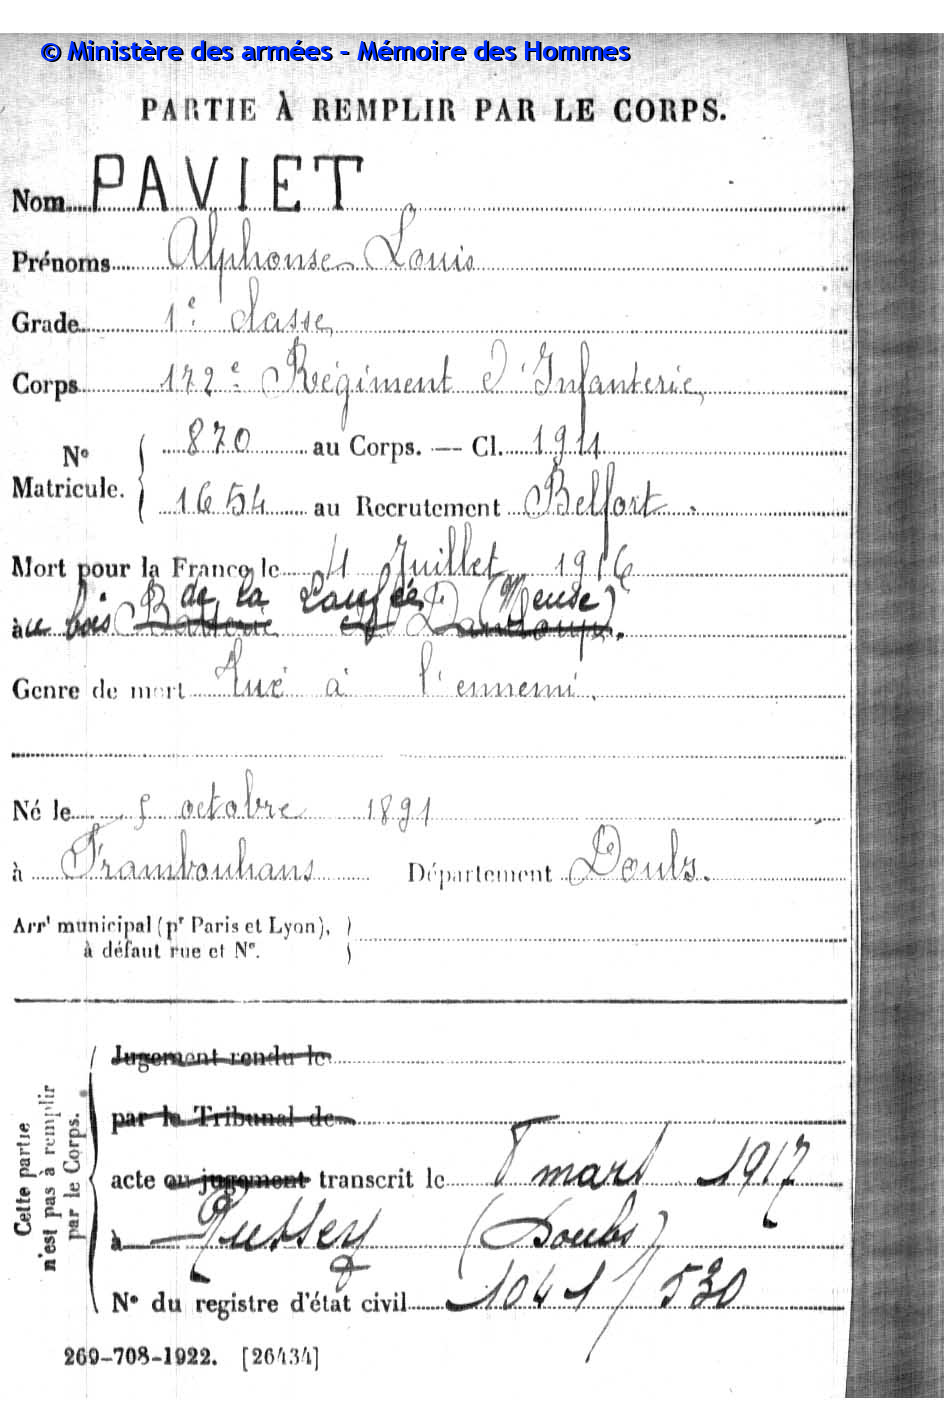 © Ministère des armées - Mémoire des Hommes
PARTIE À REMPLIR PAR LE CORPS.
Nom PAVIET
Prénoms Alphonse Louis
Grade 1e classe
Corps 172e Régiment d'Infanterie,
N° Matricule. 870 au Corps. — Cl. 1911
1654 au Recrutement Belfort.
Mort pour la France le 4 Juillet 1916
de la Laufée (Meuse)
au bois Batterie de Damloup.
Genre de mort Tué à l'ennemi.
Né le 5 octobre 1891
à Frambouhans Département Doubs.
Arrt municipal (pr Paris et Lyon),
à défaut rue et N°.
Cette partie
n'est pas à remplir
par le Corps.
Jugement rendu le
par le Tribunal de
acte ou jugement transcrit le 8 mars 1917
à Russey (Doubs)
N° du registre d'état civil 1041/530
269-708-1922. [26434]